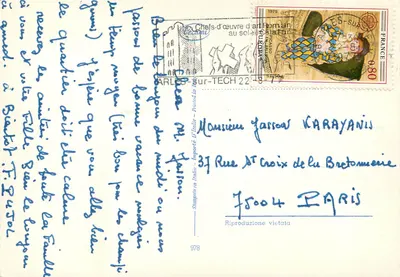 Cher M. Jasson.
Bien le bonjour du midi où nous
passons de bonne vacance malgrés
un temps moyen (très bon pour les champi
gnons) J'espère que vous allez bien
le quartier doit être calme
recevez les amitiés de toute la Famille
à vous et votre Fille Bien le bonjour
à Bientot F. PUJOL
Chefs-d'œuvre d'art roman
au soleil
ARLES-sur-TECH 22-9-77
FRANCE
0,80
Monsieur Jasson KARAYANIS
37 Rue St Croix de la Bretonnerie
75004 PARIS
Riproduzione vietata